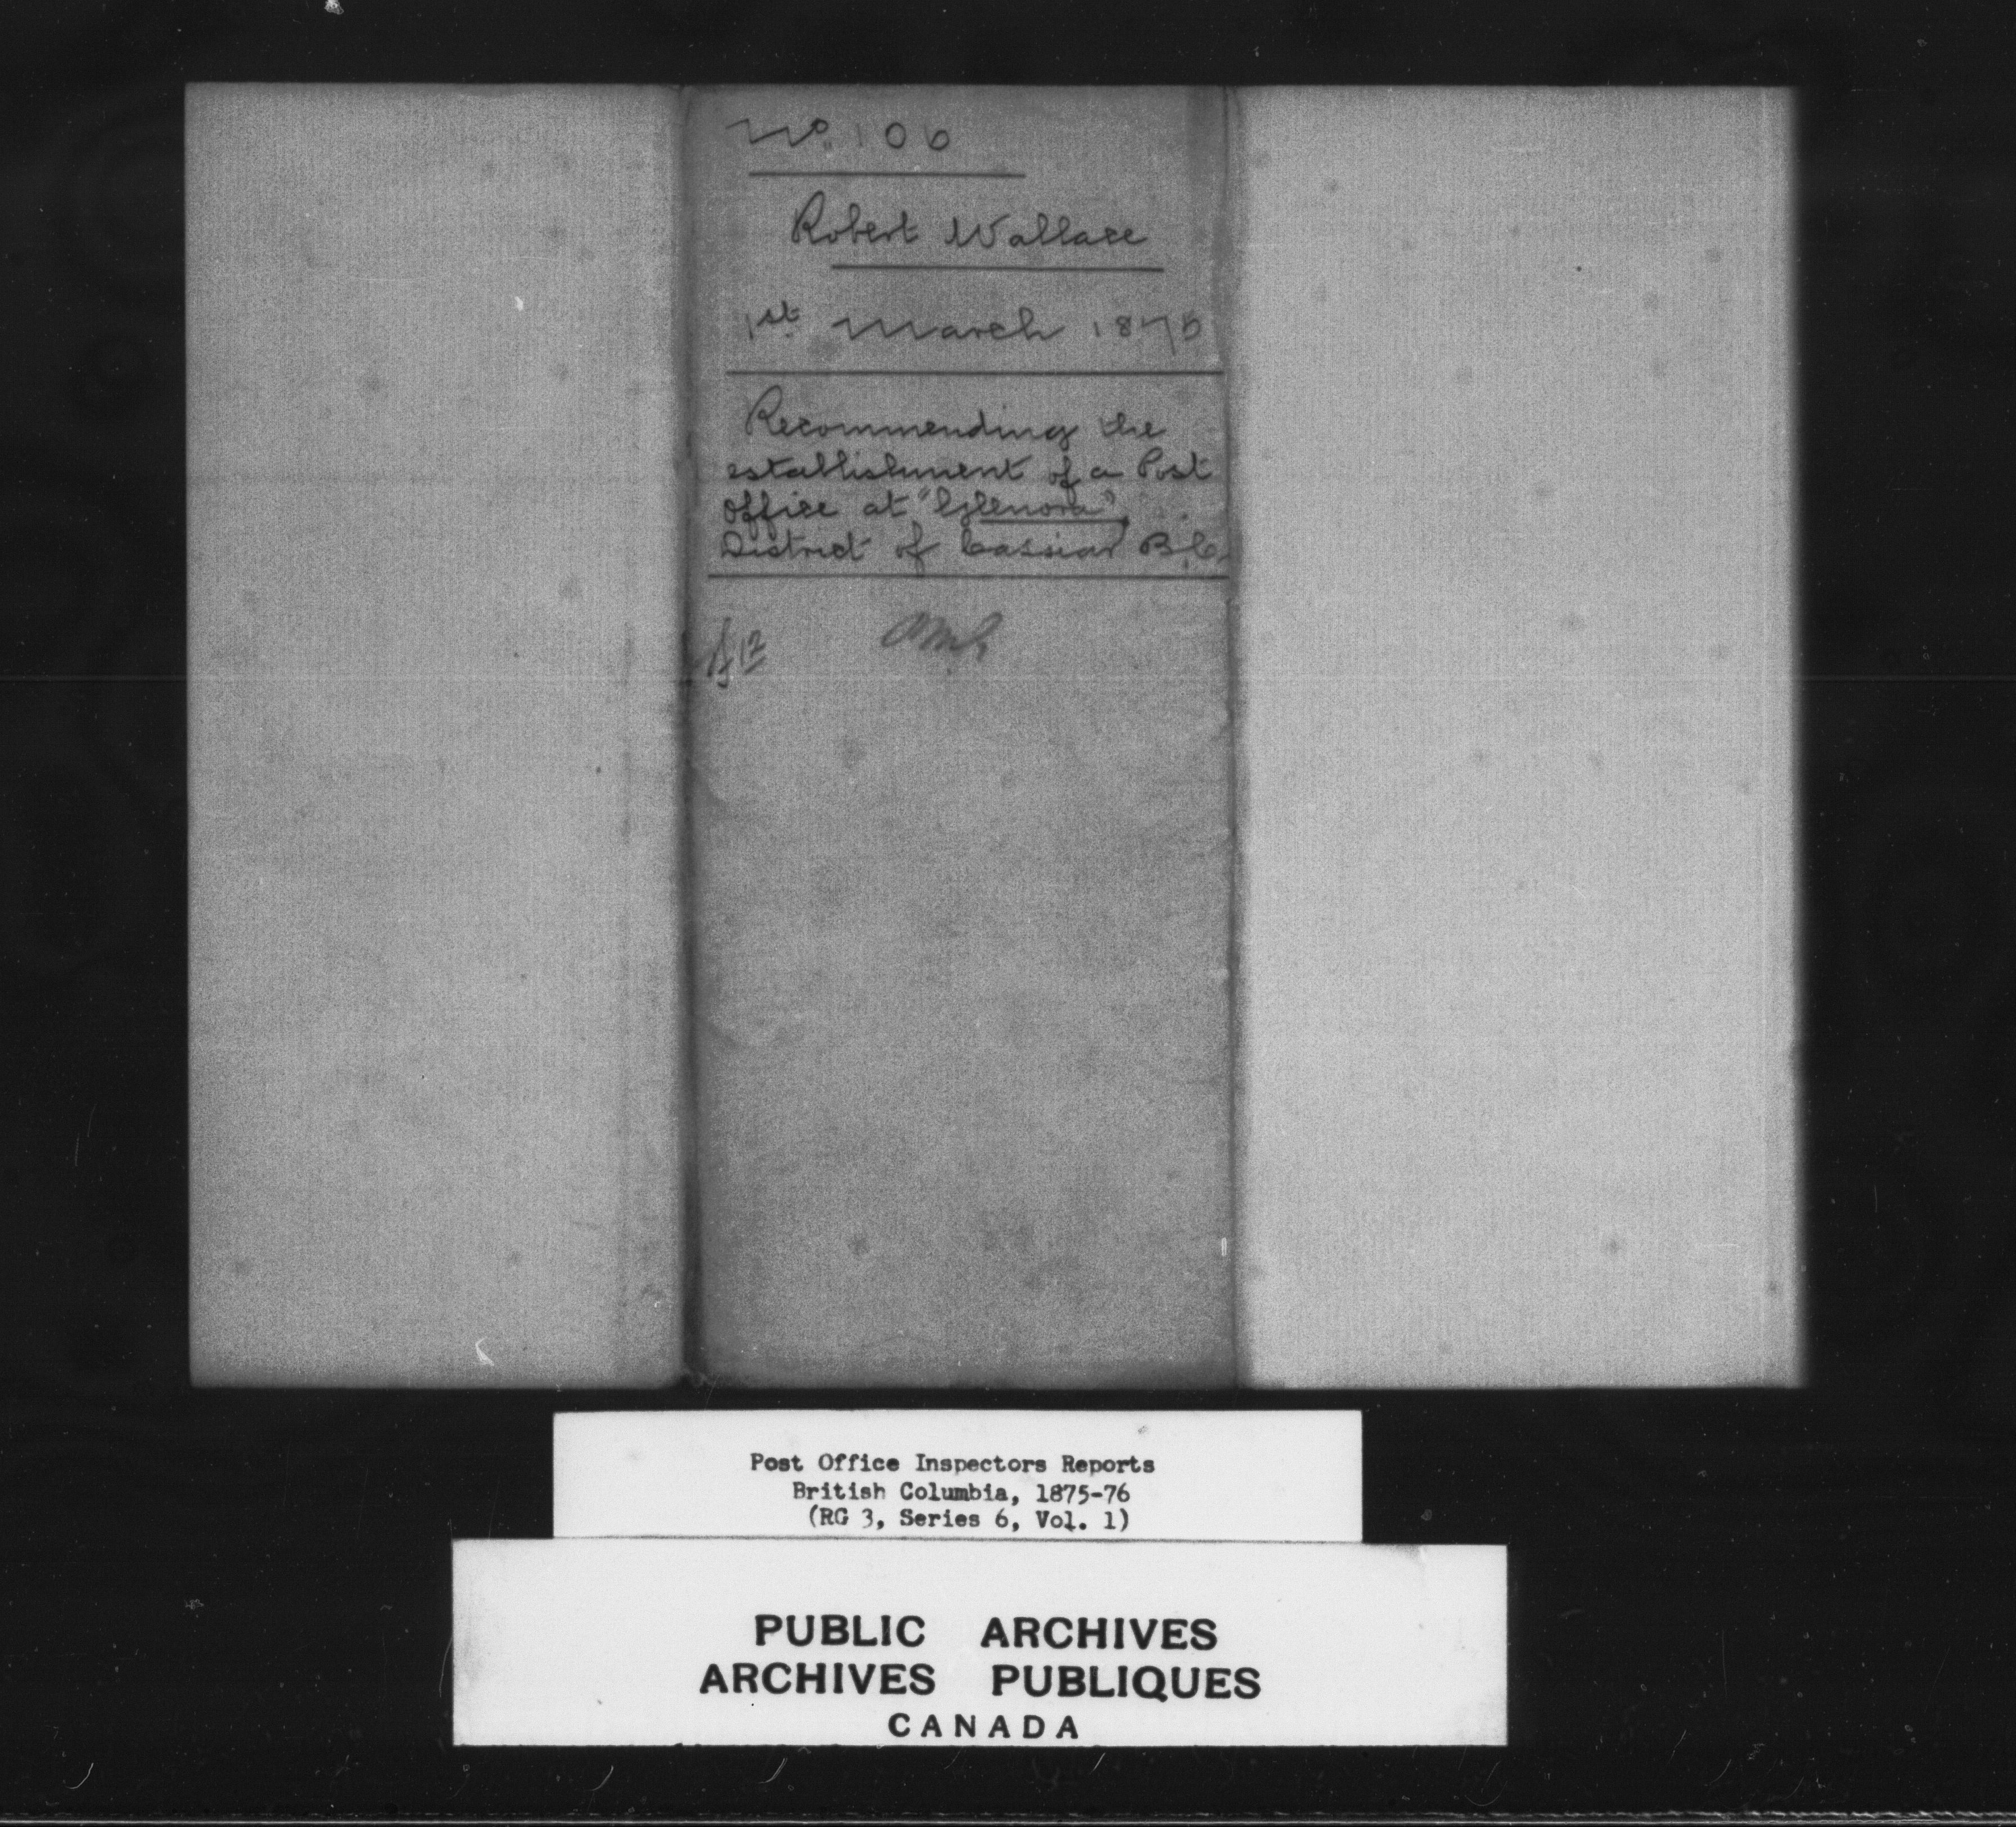 No. 106
Robert Wallace
1st March 1875
Recommending the
establishment of a Post
Office at "Glenora",
District of Cassiar B.C.
Post Office Inspectors Reports
British Columbia, 1875-76
(RG 3, Series 6, Vol. 1)
PUBLIC ARCHIVES
ARCHIVES PUBLIQUES
CANADA